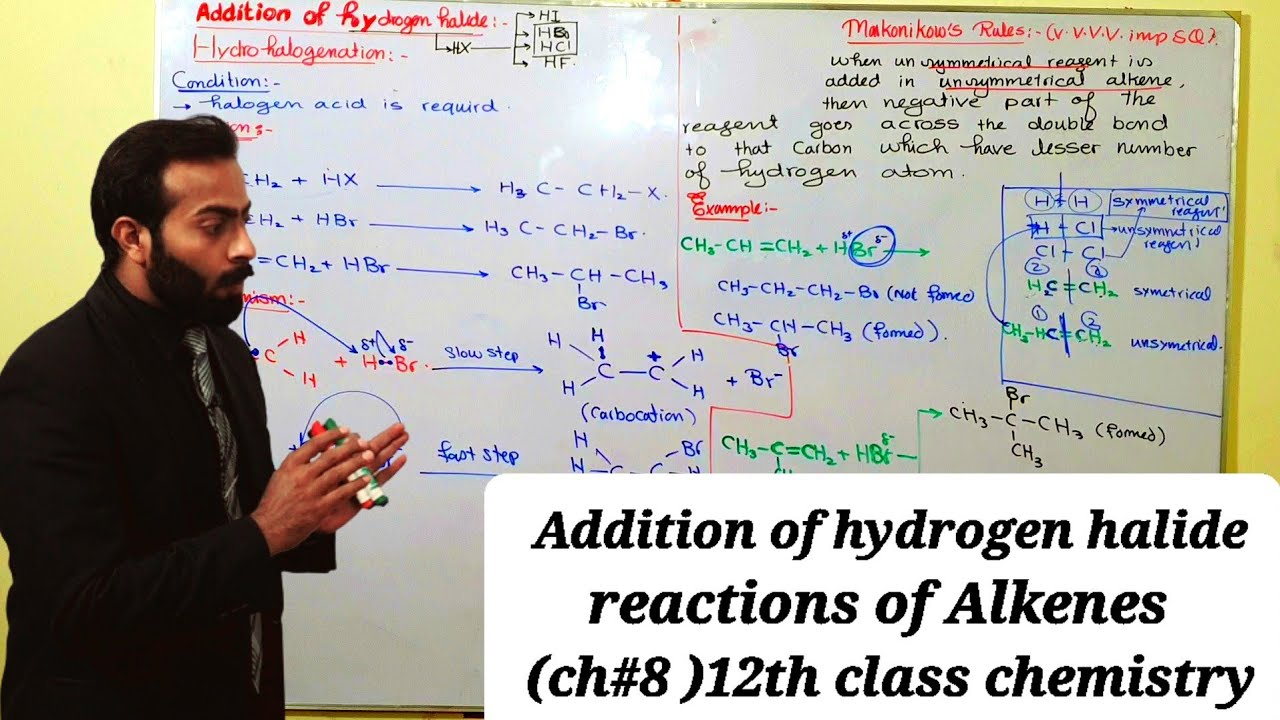 Addition of hydrogen halide:-
HX
HI
HBr
HCl
HF.
Hydro-halogenation:-
Condition:-
→ halogen acid is requird.
CH₂ + HX → H₃C-CH₂-X.
CH₂ + HBr → H₃C-CH₂-Br.
=CH₂ + HBr → CH₃-CH-CH₃
Br
C H H + Hδ+ •• Brδ- . slow step →
H H H C - C+ H H + Br⁻
(Carbocation)
fast step →
H Br
H
Markonikow's Rules:-(V.V.V.V. imp SQ).
when unsymmetrical reagent is
added in unsymmetrical alkene,
then negative part of the
reagent goes across the double bond
to that Carbon which have lesser number
of hydrogen atom.
Example:-
CH₃-CH=CH₂ + Hδ+Brδ- →
CH₃-CH₂-CH₂-Br (Not formed)
CH₃-CH-CH₃ (formed).
Br
CH₃-C=CH₂ + HBrδ- →
Br
CH₃-C-CH₃ (formed)
CH₃
H + H symmetrical
reagent
H + Cl unsymmtrical
reagent
Cl + Cl
② ②
H₂C=CH₂ symetrical
① ②
CH₃-HC=CH₂ unsymetrical.
Addition of hydrogen halide
reactions of Alkenes
(ch#8 )12th class chemistry